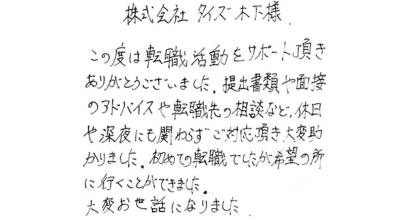 株式会社 タイズ 木下様
この度は転職活動をサポート頂き
ありがとうございました。提出書類や面接
のアドバイスや転職先の相談など、休日
や深夜にも関わらずご対応頂き大変助
かりました。初めての転職でしたが希望の所
に行くことができました。
大変お世話になりました